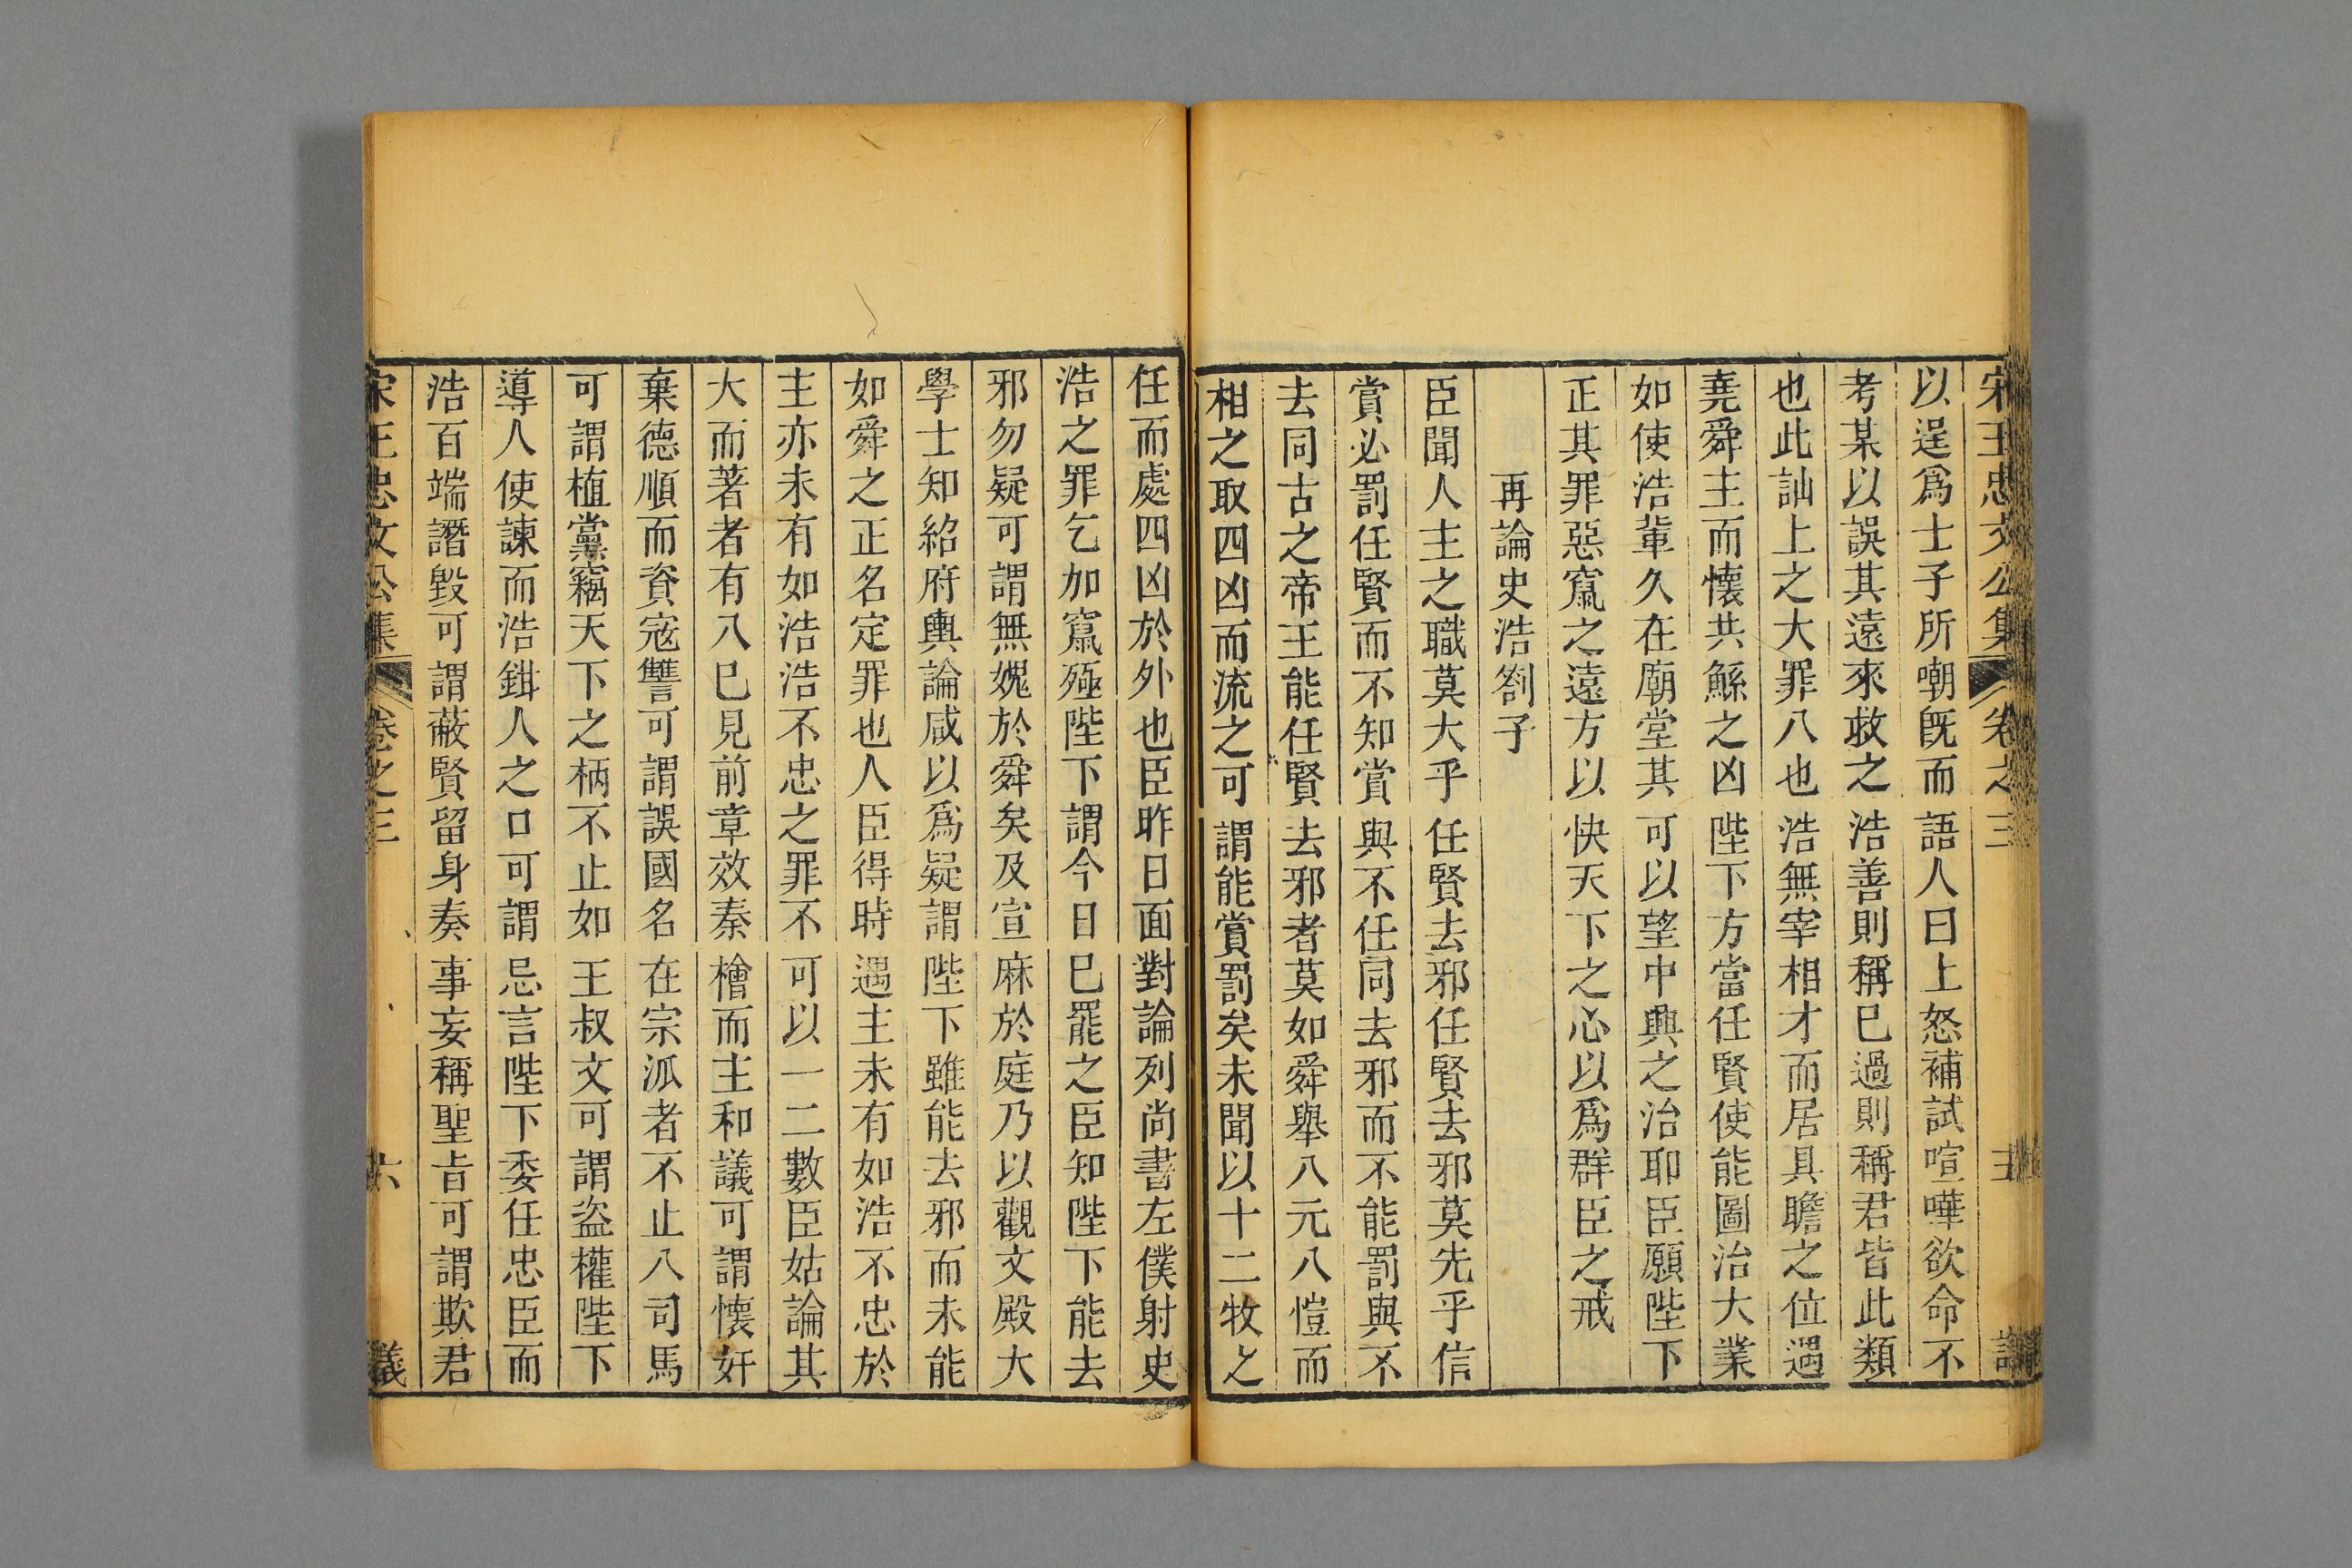 宋王忠文公集 卷之三 五 議
以逞爲士子所嘲旣而語人曰上怒補試喧嘩欲命不
考某以誤其遠來救之浩善則稱已過則稱君皆此類
也此訕上之大罪八也浩無宰相才而居具瞻之位遇
堯舜主而懷共鯀之凶陛下方當任賢使能圖治大業
如使浩輩久在廟堂其可以望中興之治耶臣願陛下
正其罪惡竄之遠方以快天下之心以爲群臣之戒
再論史浩劄子
臣聞人主之職莫大乎任賢去邪任賢去邪莫先乎信
賞必罰任賢而不知賞與不任同去邪而不能罰與不
去同古之帝王能任賢去邪者莫如舜舉八元八愷而
相之取四凶而流之可謂能賞罰矣未聞以十二牧之
任而處四凶於外也臣昨日面對論列尚書左僕射史
浩之罪乞加竄殛陛下謂今日已罷之臣知陛下能去
邪勿疑可謂無媿於舜矣及宣麻於庭乃以觀文殿大
學士知紹府輿論咸以爲疑謂陛下雖能去邪而未能
如舜之正名定罪也人臣得時遇主未有如浩不忠於
主亦未有如浩浩不忠之罪不可以一二數臣姑論其
大而著者有八已見前章效秦檜而主和議可謂懷奸
棄德順而資寇讐可謂誤國名在宗派者不止八司馬
可謂植黨竊天下之柄不止如王叔文可謂盜權陛下
導人使諫而浩鉗人之口可謂忌言陛下委任忠臣而
浩百端譖毀可謂蔽賢留身奏事妄稱聖旨可謂欺君
宋王忠文公集 卷之三 六 議